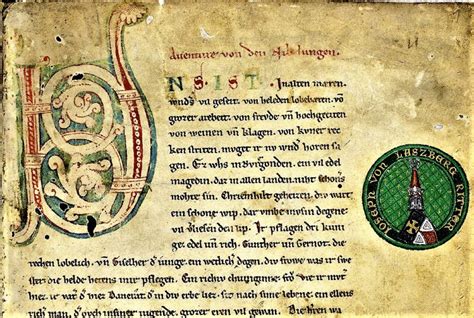 Auenture von den Nibelungen.
NS IST In alten mæren
wnders vil geseit. von heleden lobebæren. vñ
grozer arebeit. von frevde vnd hochgeciten
von weinen vñ klagen. von kvner re
cken striten. mvget ir nv wnder horen sa
gen. Ez whs in Bvrgonden. ein vil edel
magedin. daz in allen landen. niht schoners
mohte sin. Chriemhilt geheizen. div wart
ein schone wip. dar vmbe mvsin degene
vil vliesen den lip. Ir pflagen dri kuni
ge edel vñ rich. Gunther vñ Gernot. die
rechen lobelich. vñ Giselher d iunge. ein wetlich degen. div frowe was ir swe
ster die helde heten ir pflegen. Ein richiv chuniginne. frov Vte ir mvter
hiez. ir vat d hiez Dancrat. d in div erbe liez. sit nach sime lebene. ein ellens
rich man. d ovch in siner iugende. grozer eren vil gewan. Die h'ren wa
IOSEPH VON LASZBERG RITTER